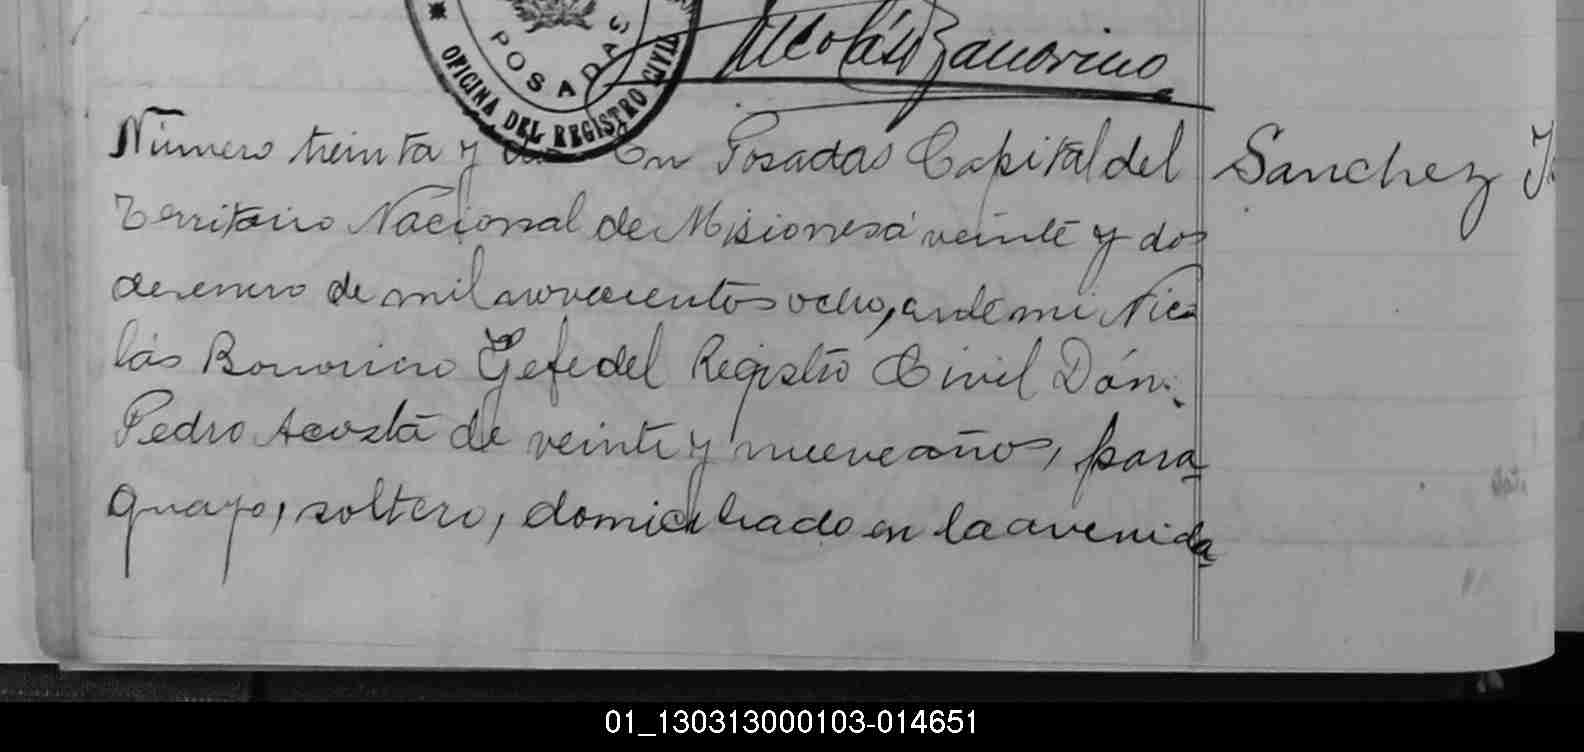 POSADAS
OFICINA DEL REGISTRO CIVIL
Nicolás Bonorino
Número treinta y En Posadas Capital del
Sanchez
Territorio Nacional de Misiones á veinte y dos
de enero de mil novecientos ocho, ante mi Nico
lás Bonorino Gefe del Registro Civil Dón
Pedro Acosta de veinte y nueve años, para
guayo, soltero, domiciliado en la avenida
01_130313000103-014651